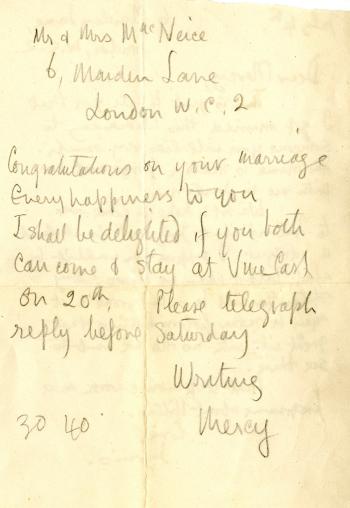 Mr & Mrs MacNeice
6, Maiden Lane
London W.C. 2
Congratulations on your marriage
Every happiness to you
I shall be delighted if you both
can come & stay at
on 20th, Please telegraph
reply before Saturday
Writing
30 40 Mercy